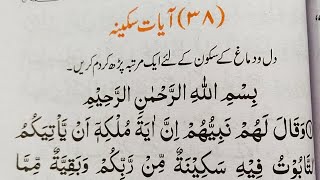 (۳۸) آیات سکینہ
دل و دماغ کے سکون کے لئے ایک مرتبہ پڑھ کر دم کریں۔
بِسْمِ اللهِ الرَّحْمٰنِ الرَّحِيْمِ
وَقَالَ لَهُمْ نَبِيُّهُمْ اِنَّ اٰيَةَ مُلْكِهٖ اَنْ يَّاْتِيَكُمُ
التَّابُوْتُ فِيْهِ سَكِيْنَةٌ مِّنْ رَّبِّكُمْ وَبَقِيَّةٌ مِّمَّا